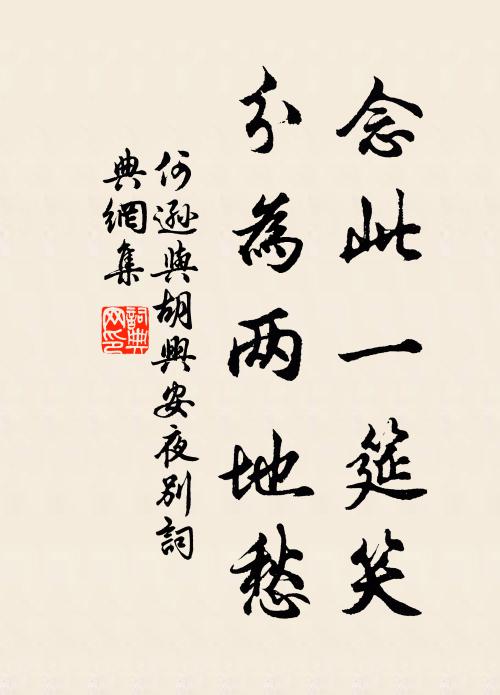 念此一筵笑
分為两地愁
何遜與胡興安夜別詞
典網集
詞典
网印